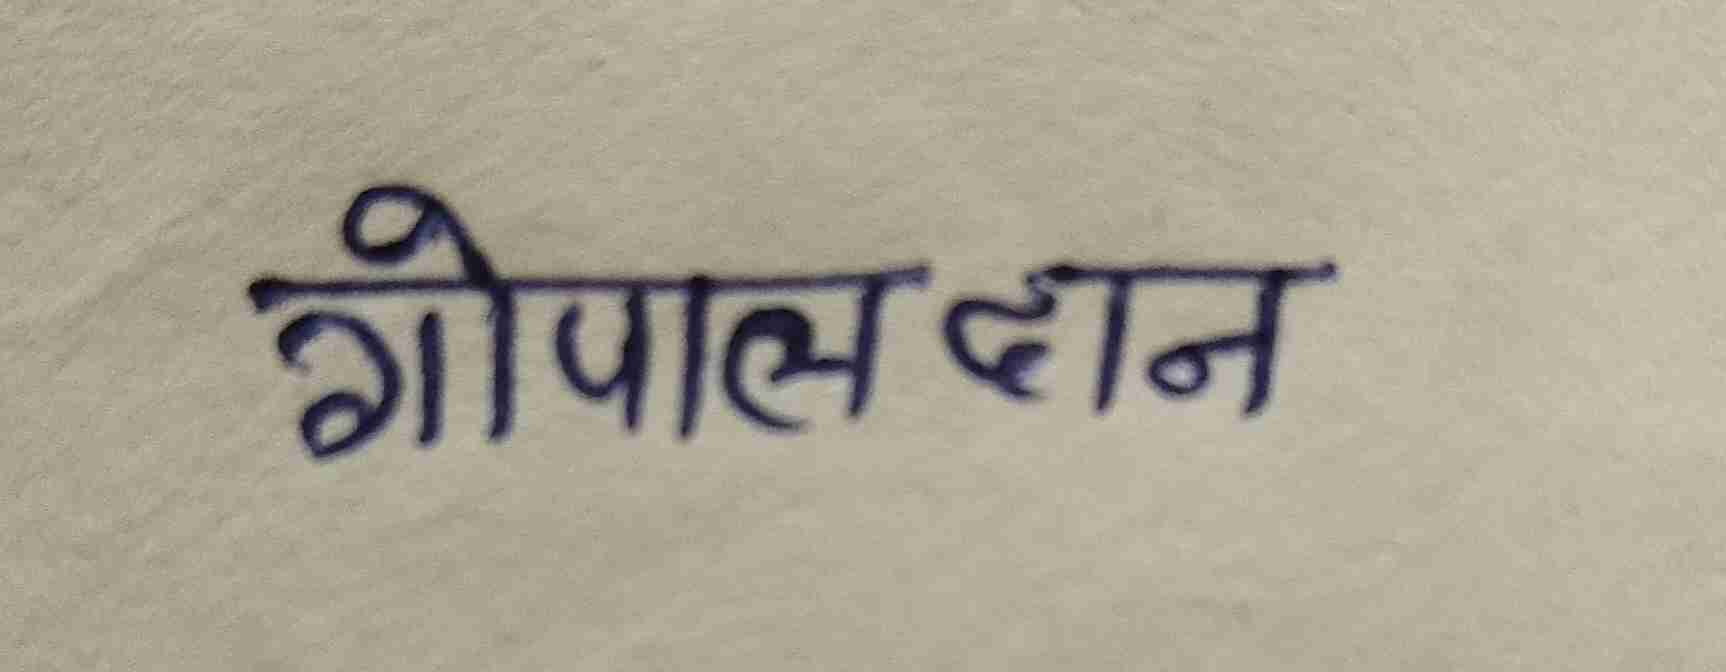 गोपाल दान